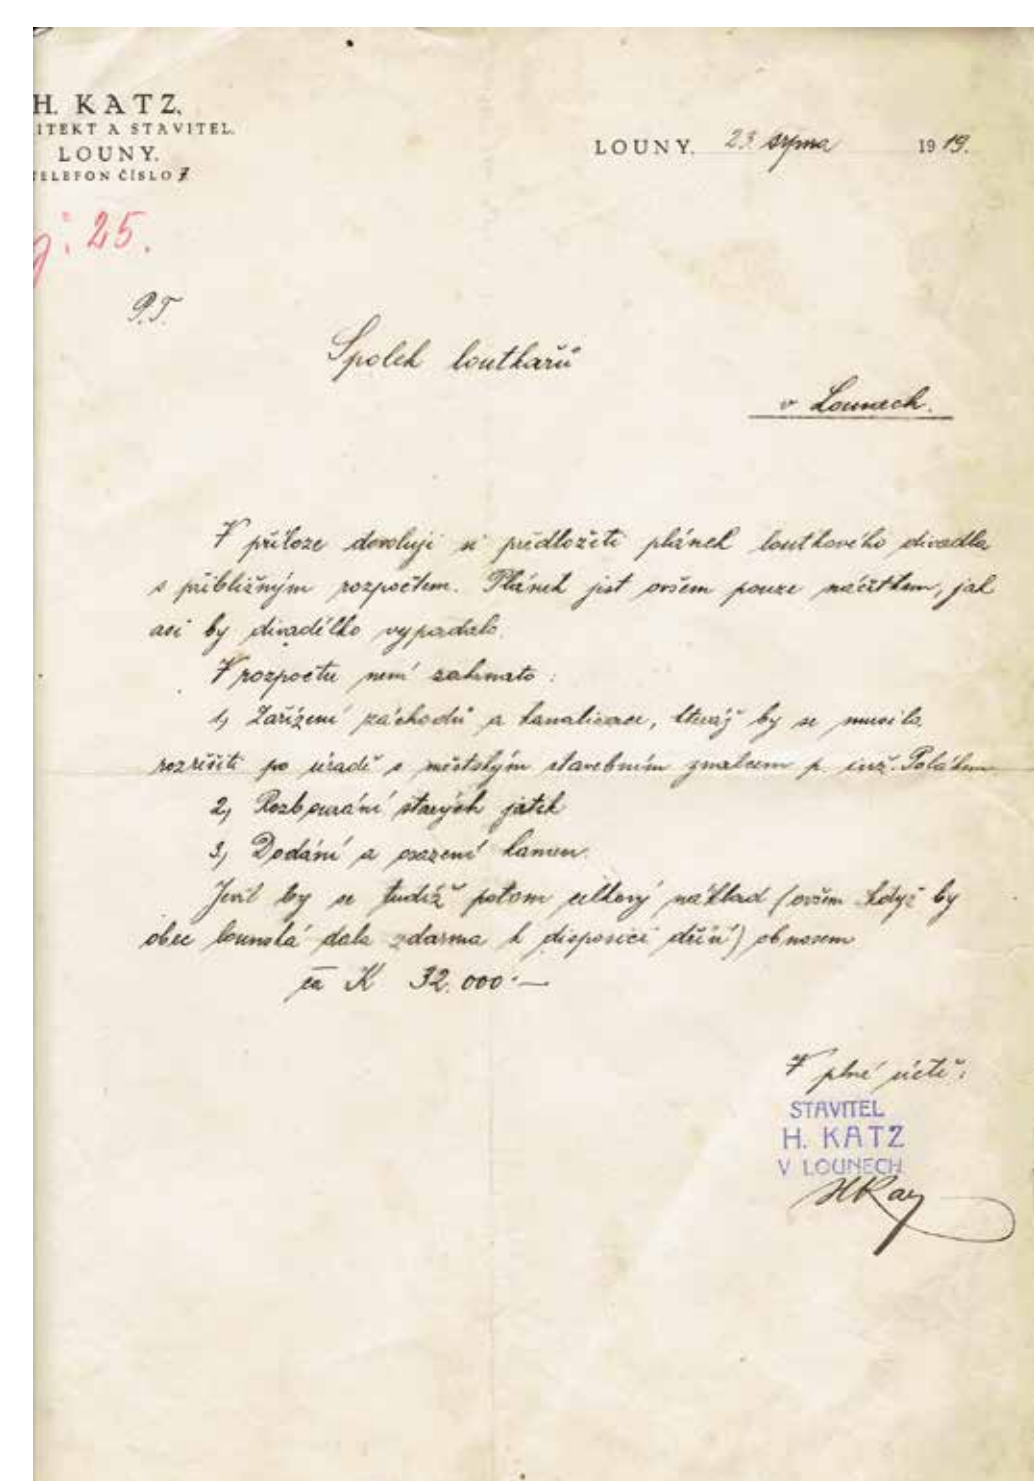 H. KATZ,
ITEKT A STAVITEL.
LOUNY.
TELEFON ČÍSLO 7
LOUNY. 23. srpna 1919.
j: 25.
P.T.
Spolek loutkařů
v Lounech.
V příloze dovoluji si předložiti plánek loutkového divadla
s přibližným rozpočtem. Plánek jest ovšem pouze náčrtkem, jak
asi by divadélko vypadalo.
V rozpočtu není zahrnuto:
1, Zařízení záchodů a kanalisace, kteráž by se musila
rozřešiti po úradě s městským stavebním znalcem p. inž. Polákem
2, Rozbourání starých jatek
3, Dodání a osazení kamen.
Jevil by se tudíž potom celkový náklad (ovšem když by
obec lounská dala zdarma k disposici dříví) obnosem
ca K 32.000·—
V plné úctě:
STAVITEL
H. KATZ
V LOUNECH.
HKaz